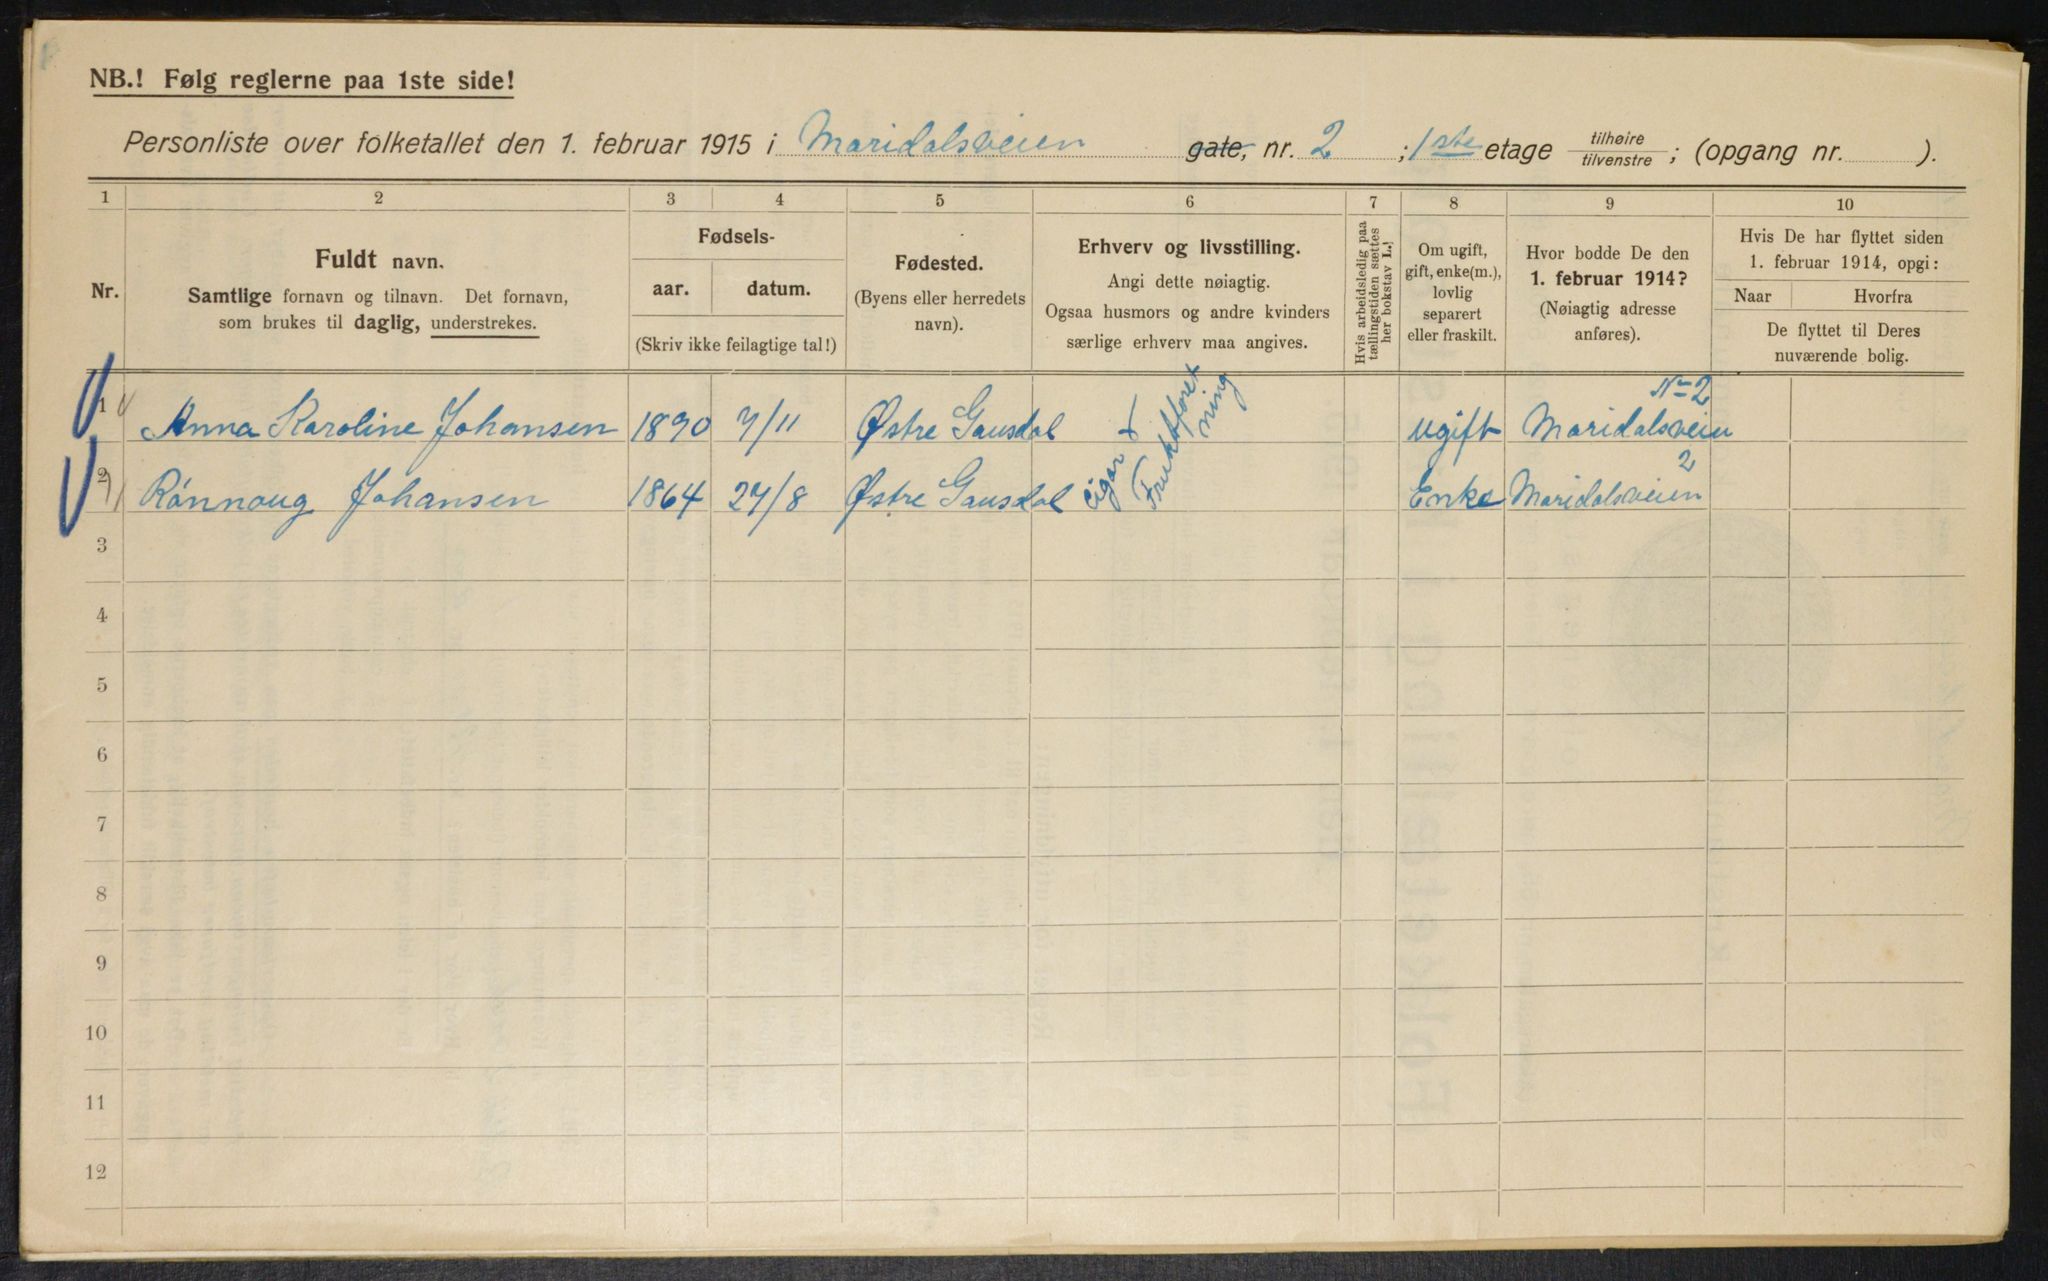 NB.! Følg reglerne paa 1ste side!
Personliste over folketallet den 1. februar 1915 i Maridalsveien gate, nr. 2 ; 1ste etage tilhøire tilvenstre ; (opgang nr. ).
1 2 3 4 5 6 7 8 9 10
Nr.
Fuldt navn.
Samtlige fornavn og tilnavn. Det fornavn,
som brukes til daglig, understrekes.
Fødsels-
aar. datum.
(Skriv ikke feilagtige tal!)
Fødested.
(Byens eller herredets
navn).
Erhverv og livsstilling.
Angi dette nøiagtig.
Ogsaa husmors og andre kvinders
særlige erhverv maa angives.
Hvis arbeidsledig paa
tællingstiden sættes
her bokstav L.!
Om ugift,
gift, enke(m.),
lovlig
separert
eller fraskilt.
Hvor bodde De den
1. februar 1914?
(Nøiagtig adresse
anføres).
Hvis De har flyttet siden
1. februar 1914, opgi:
Naar Hvorfra
De flyttet til Deres
nuværende bolig.
1 Anna Karoline Johansen 1890 7/11 Østre Gausdal ugift Maridalsveien Nr 2
Cigar &
Fruktforret
ning
2 Rønnoug Johansen 1864 27/8 Østre Gausdal Enke Maridalsveien 2
3
4
5
6
7
8
9
10
11
12